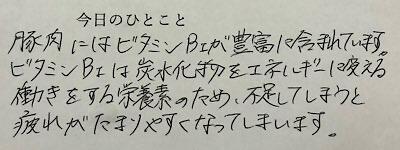 今日のひとこと
豚肉にはビタミンB1が豊富に含まれています。
ビタミンB1は炭水化物をエネルギーに変える
働きをする栄養素のため、不足してしまうと
疲れがたまりやすくなってしまいます。